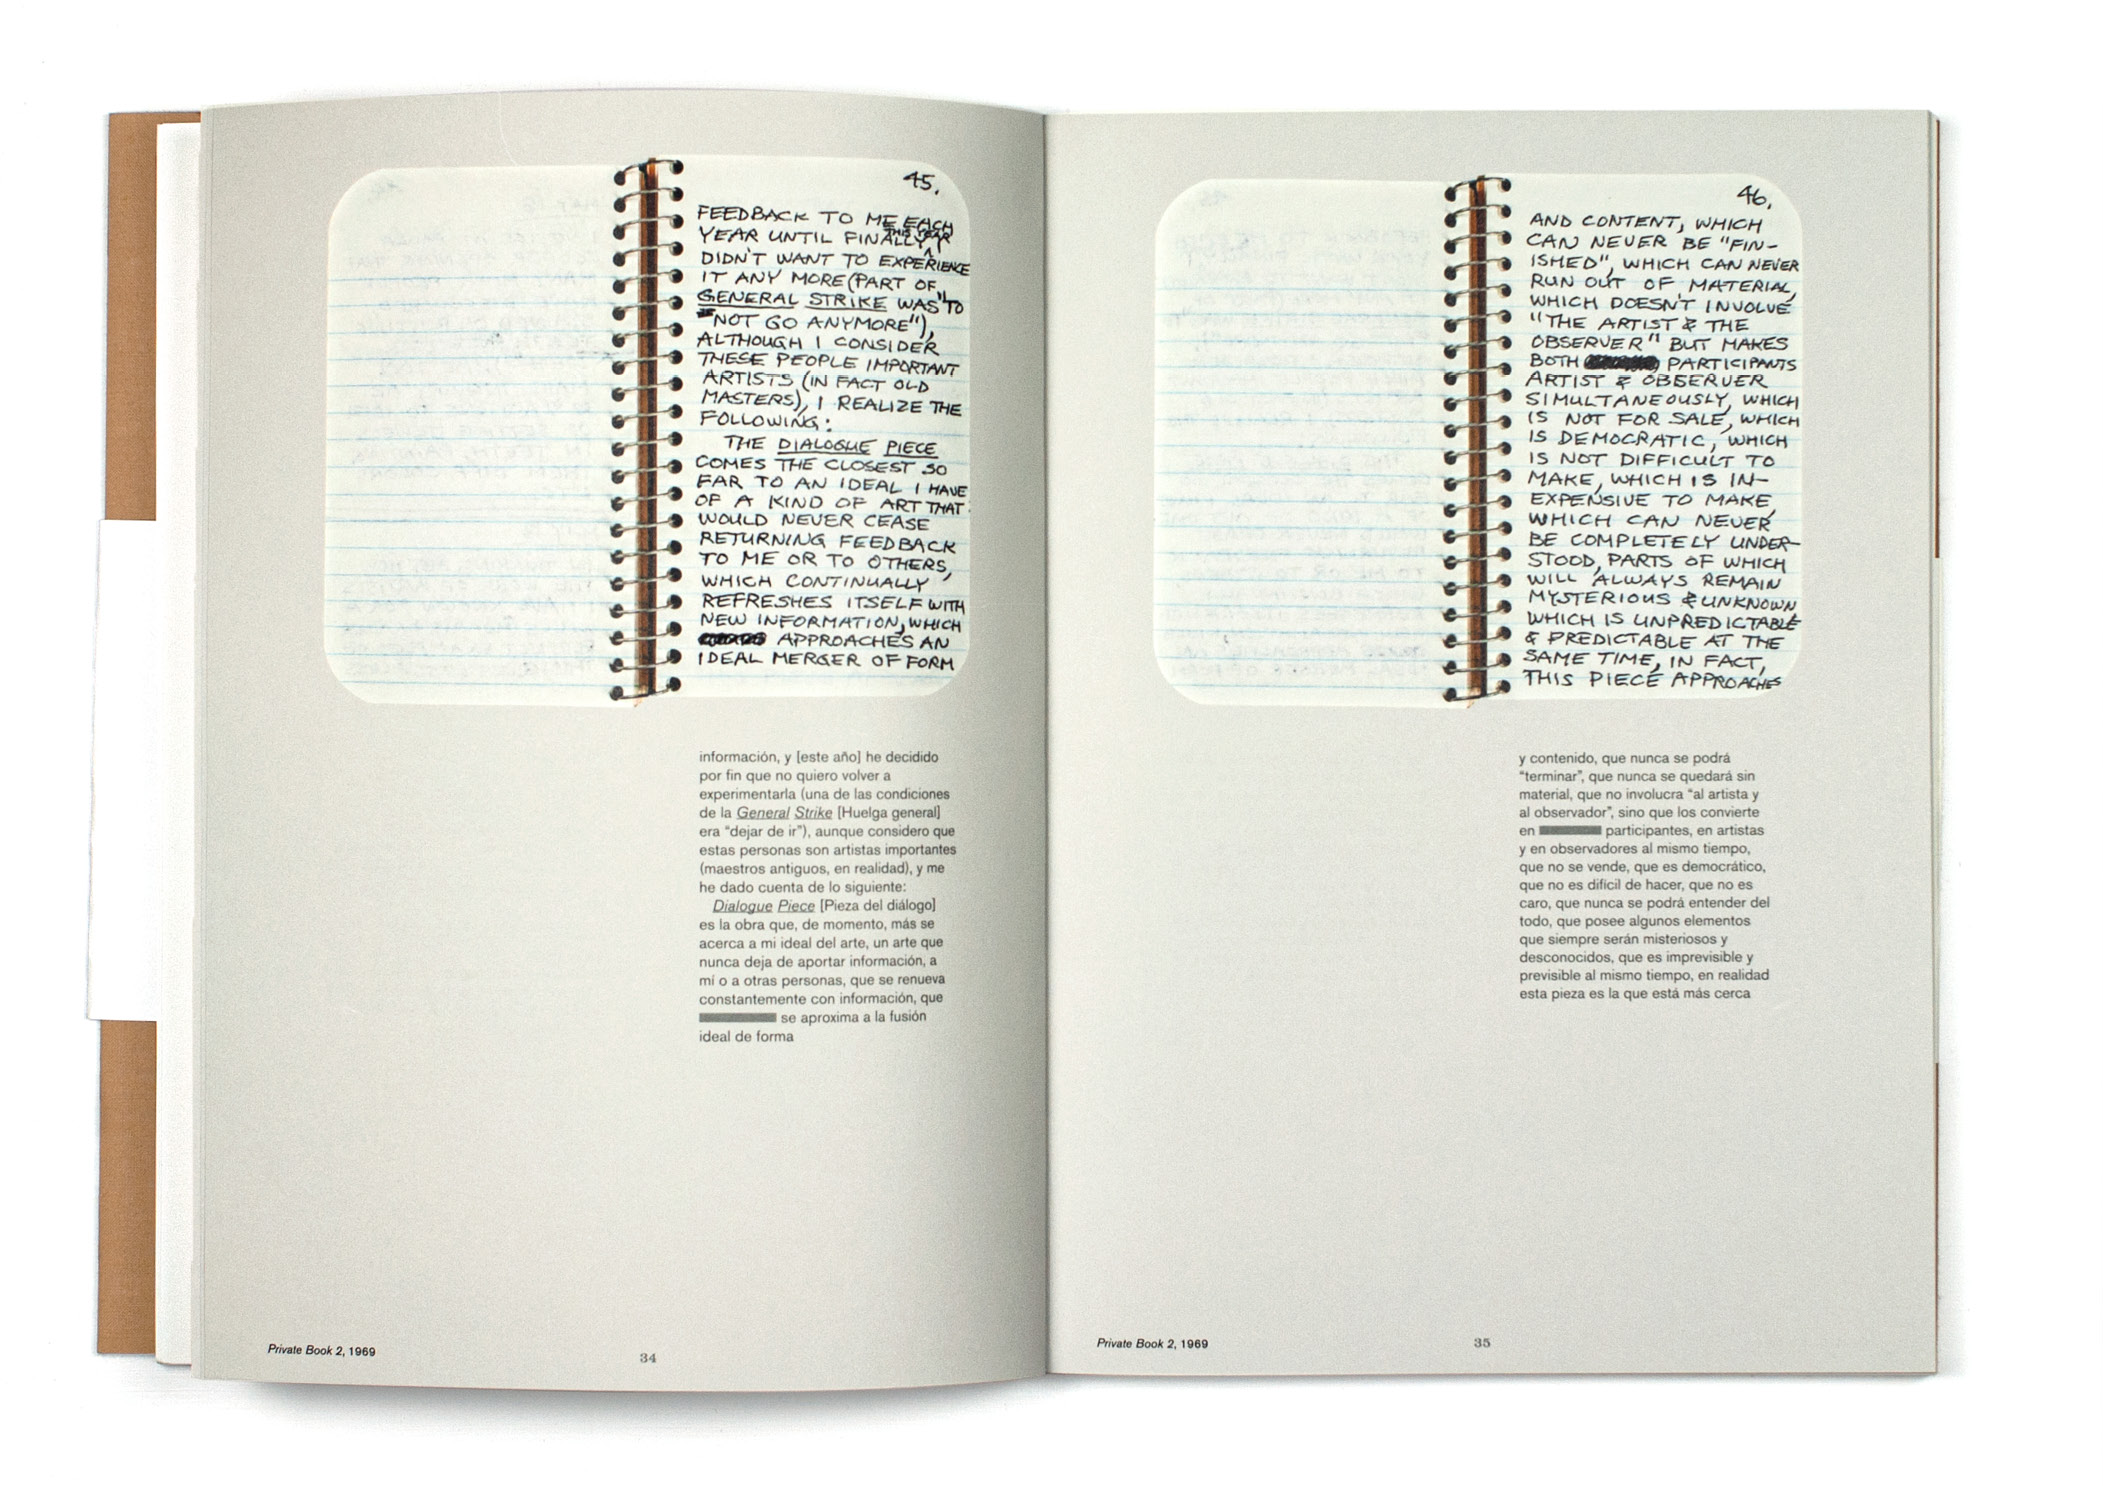 45.
FEEDBACK TO ME EACH
YEAR UNTIL FINALLY THIS YEAR I
DIDN'T WANT TO EXPERIENCE
IT ANY MORE (PART OF
GENERAL STRIKE WAS "TO
NOT GO ANYMORE"),
ALTHOUGH I CONSIDER
THESE PEOPLE IMPORTANT
ARTISTS (IN FACT OLD
MASTERS), I REALIZE THE
FOLLOWING:
THE DIALOGUE PIECE
COMES THE CLOSEST SO
FAR TO AN IDEAL I HAVE
OF A KIND OF ART THAT
WOULD NEVER CEASE
RETURNING FEEDBACK
TO ME OR TO OTHERS,
WHICH CONTINUALLY
REFRESHES ITSELF WITH
NEW INFORMATION, WHICH
APPROACHES AN
IDEAL MERGER OF FORM
información, y [este año] he decidido
por fin que no quiero volver a
experimentarla (una de las condiciones
de la General Strike [Huelga general]
era “dejar de ir”), aunque considero que
estas personas son artistas importantes
(maestros antiguos, en realidad), y me
he dado cuenta de lo siguiente:
Dialogue Piece [Pieza del diálogo]
es la obra que, de momento, más se
acerca a mi ideal del arte, un arte que
nunca deja de aportar información, a
mí o a otras personas, que se renueva
constantemente con información, que
se aproxima a la fusión
ideal de forma
Private Book 2, 1969
34
46.
AND CONTENT, WHICH
CAN NEVER BE "FIN-
ISHED", WHICH CAN NEVER
RUN OUT OF MATERIAL,
WHICH DOESN'T INVOLVE
"THE ARTIST & THE
OBSERVER" BUT MAKES
BOTH PARTICIPANTS
ARTIST & OBSERVER
SIMULTANEOUSLY, WHICH
IS NOT FOR SALE, WHICH
IS DEMOCRATIC, WHICH
IS NOT DIFFICULT TO
MAKE, WHICH IS IN-
EXPENSIVE TO MAKE,
WHICH CAN NEVER
BE COMPLETELY UNDER-
STOOD, PARTS OF WHICH
WILL ALWAYS REMAIN
MYSTERIOUS & UNKNOWN
WHICH IS UNPREDICTABLE
& PREDICTABLE AT THE
SAME TIME, IN FACT,
THIS PIECE APPROACHES
y contenido, que nunca se podrá
“terminar”, que nunca se quedará sin
material, que no involucra “al artista y
al observador”, sino que los convierte
en participantes, en artistas
y en observadores al mismo tiempo,
que no se vende, que es democrático,
que no es difícil de hacer, que no es
caro, que nunca se podrá entender del
todo, que posee algunos elementos
que siempre serán misteriosos y
desconocidos, que es imprevisible y
previsible al mismo tiempo, en realidad
esta pieza es la que está más cerca
Private Book 2, 1969
35